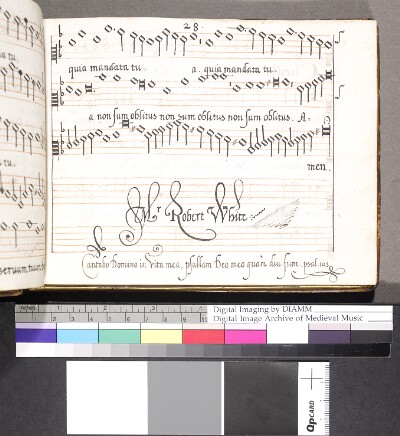 28.
quia mandata tu a. quia mandata tu.
a non sum oblitus non sum oblitus non sum oblitus. A-
men.
Mr Robert White
Cantabo Domino in vita mea, psallam Deo meo quam diu sum. psal. 103.
tu.
inches 1 2 3 4 5 6 7
cm 1 2 3 4 5 6 7 8 9 10
Digital Imaging by DIAMM
Digital Image Archive of Medieval Music
QPCARD